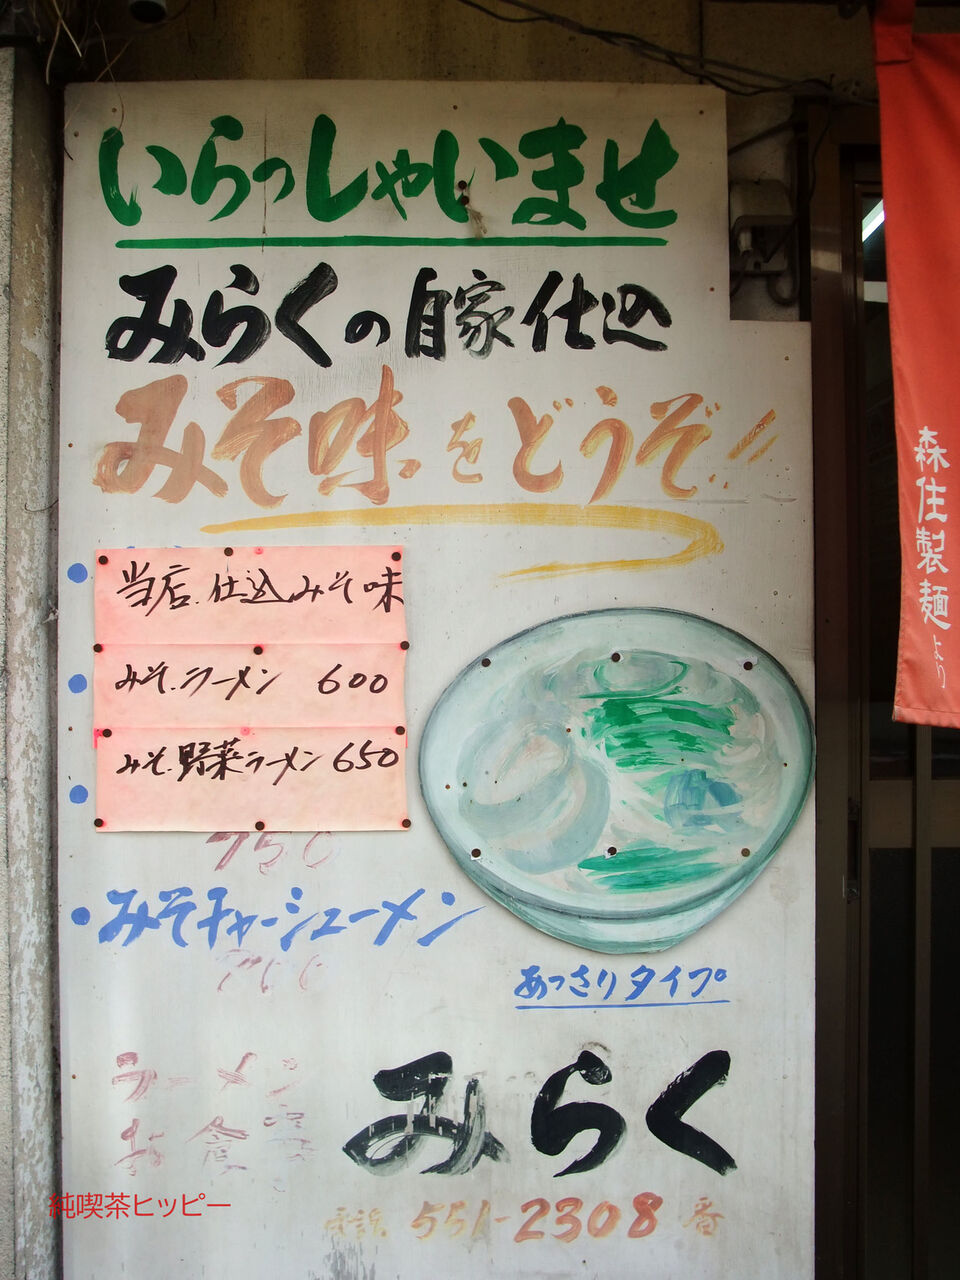 いらっしゃいませ
みらくの自家仕込
みそ味をどうぞ!!
当店.仕込みそ味
みそ.ラーメン 600
みそ.野菜ラーメン 650
750
・みそチャーシューメン
あっさりタイプ
ラーメン
お食事
みらく
電話 551-2308 番
森住製麺より
純喫茶ヒッピー